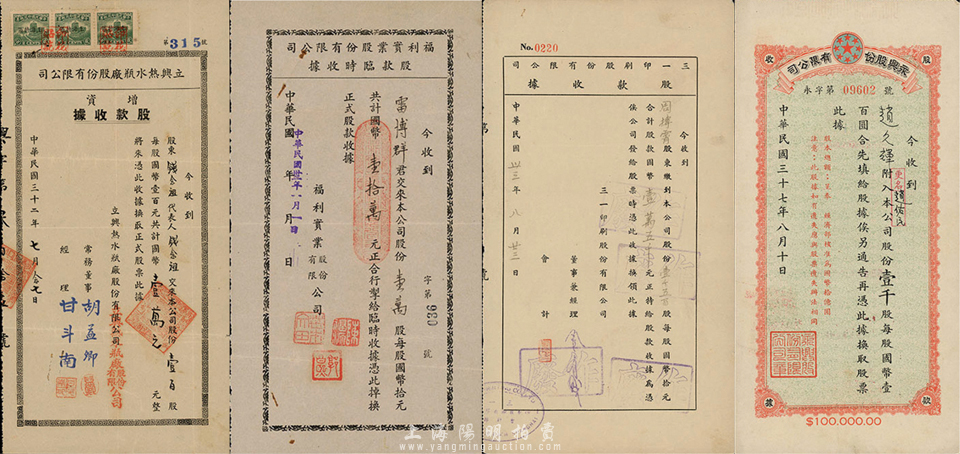 第315號
司公限有份股廠瓶水熱興立
資增
據收款股
今收到
股東錢念祖代表人錢念祖交來本公司股份壹百股
每股國幣壹百元共計國幣壹萬元元整
將來憑此收據換取正式股票此據
立興熱水瓶廠股份有限公司
常務董事 胡孟卿
經理 甘斗南
中華民國三十二年七月
司公限有份股業實利福
據收時臨款股
今收到
雷博群君交來本公司股份壹萬股每股國幣拾元
共計國幣壹拾萬元正合行掣給臨時收據憑此掉換
正式股款收據
福利實業股份有限公司
字第960號
中華民國 年 月 日
No.0220
司公限有份股刷印一三
據收款股
今收到
股東繳到本公司股份壹千五百股每股國幣拾元
合計股款國幣壹萬五千元正特給股款收據為憑
俟公司發給股票時憑此收據換領此據
三一印刷股份有限公司
董事兼經理
會計
中華民國卅三年八月廿三日
司公限有份股興永
永字第09602號
今收到
趙久輝附入本公司股份壹千股每股國幣壹
百圓合先填給股據俟另通告再憑此據換取股票
此據
中華民國三十七年八月十日
收股據款
$100,000.00
上海陽明拍賣
www.yangmingauction.com